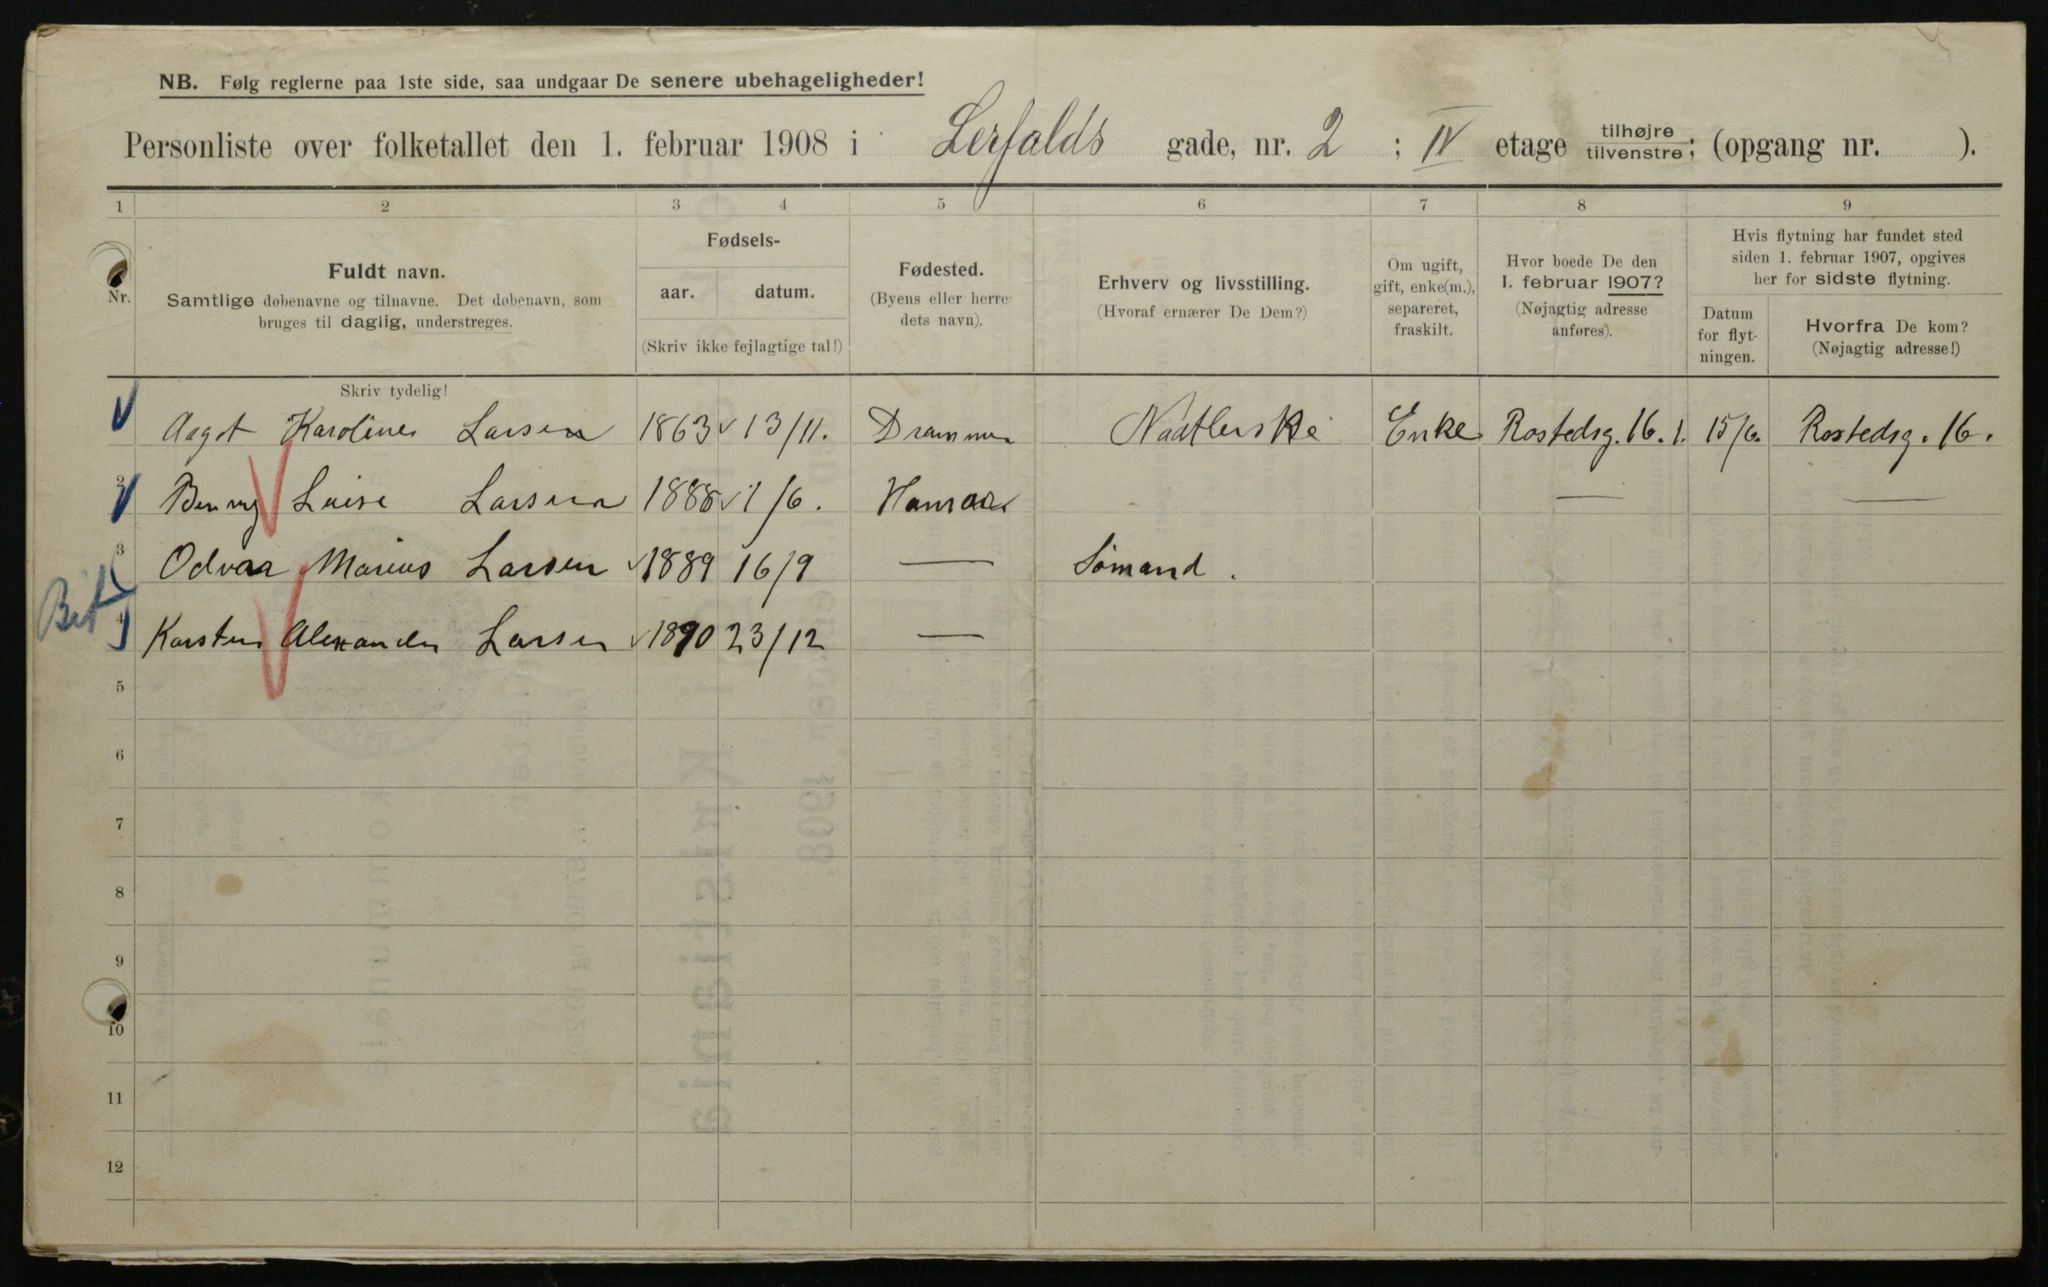 NB. Følg reglerne paa 1ste side, saa undgaar De senere ubehageligheder!
Personliste over folketallet den 1. februar 1908 i Lerfalds gade, nr. 2 ; IV etage tilhøjre / tilvenstre; (opgang nr. ).
1 2 3 4 5 6 7 8 9
Nr.
Fuldt navn.
Samtlige døbenavne og tilnavne. Det døbenavn, som
bruges til daglig, understreges.
Skriv tydelig!
Fødsels-
aar. datum.
(Skriv ikke fejlagtige tal!)
Fødested.
(Byens eller herre-
dets navn).
Erhverv og livsstilling.
(Hvoraf ernærer De Dem?)
Om ugift,
gift, enke(m.),
separeret,
fraskilt.
Hvor boede De den
1. februar 1907?
(Nøjagtig adresse
anføres).
Hvis flytning har fundet sted
siden 1. februar 1907, opgives
her for sidste flytning.
Datum
for flyt-
ningen.
Hvorfra De kom?
(Nøjagtig adresse!)
Aagot Karoline Larsen 1863 13/11. Drammen Enke Rostedsg. 16. 1. 15/6. Rostedsg. 16.
2 Larsen 1888 1/6. —— ——
3 Marius Larsen 1889 16/9 — Sømand.
4 Karsten Alexander Larsen 1890 23/12 —
5
6
7
8
9
10
11
12